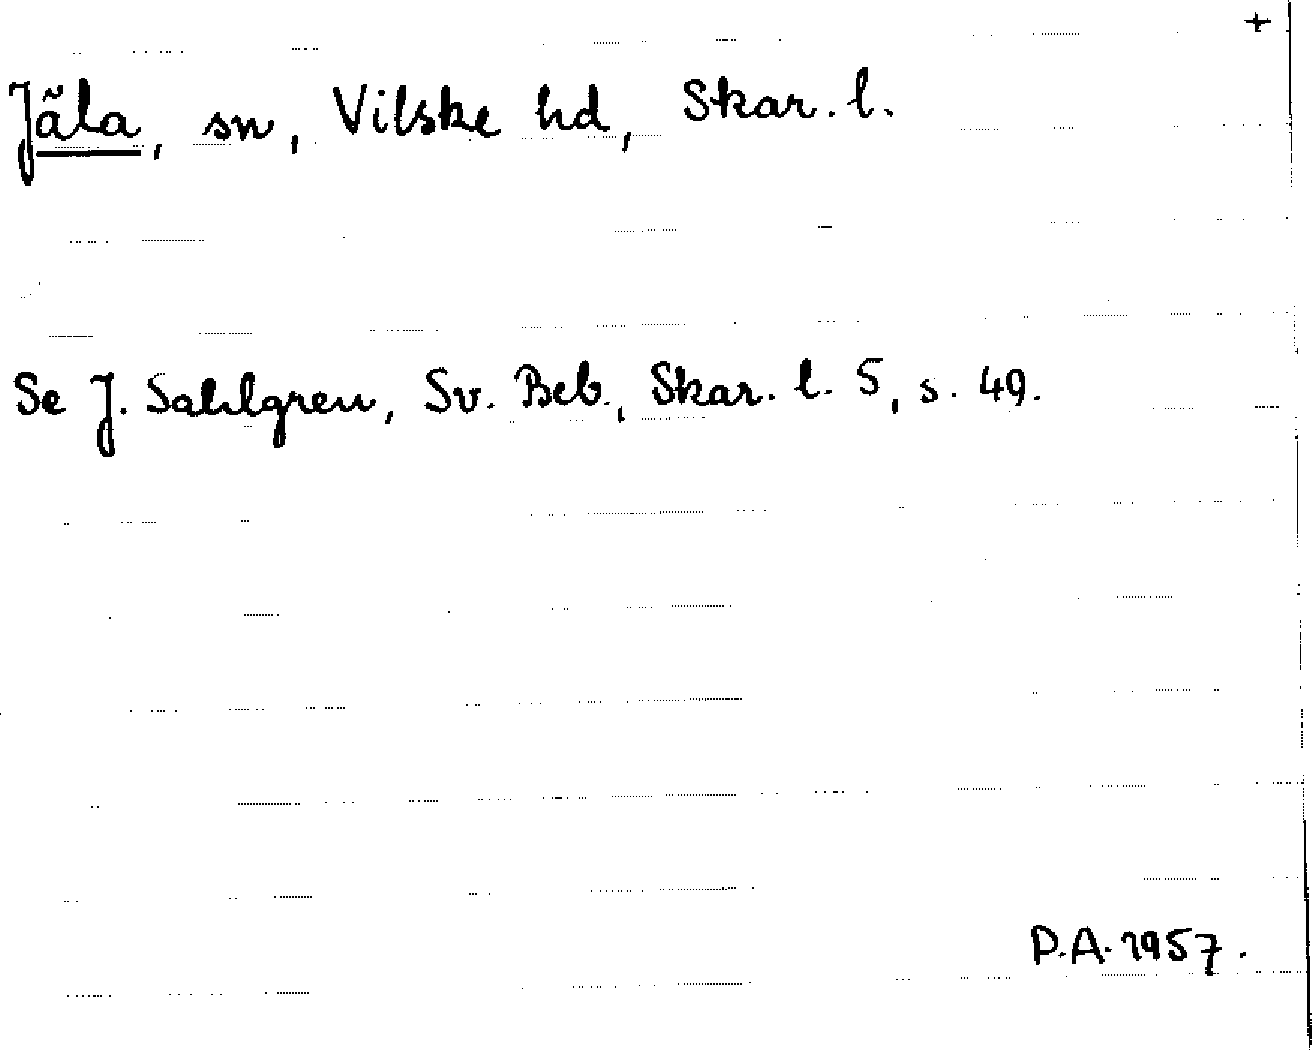 +
Jäla, sn, Vilske hd, Skar. l.
Se J. Sahlgren, Sv. Beb., Skar. l. 5, s. 49.
P.A. 1957.